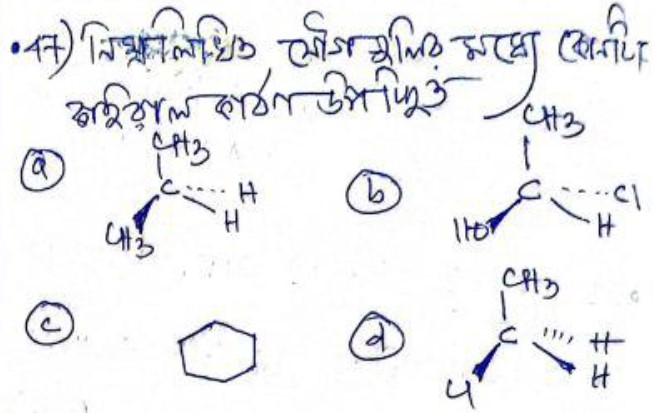 •47) নিম্নলিখিত যৌগ গুলির মধ্যে কোনটি
কাইরাল কার্বণ উপস্থিত
(a) CH3 C H H CH3
(b) CH3 C Cl H HO
(c)
(d) CH3 C H H